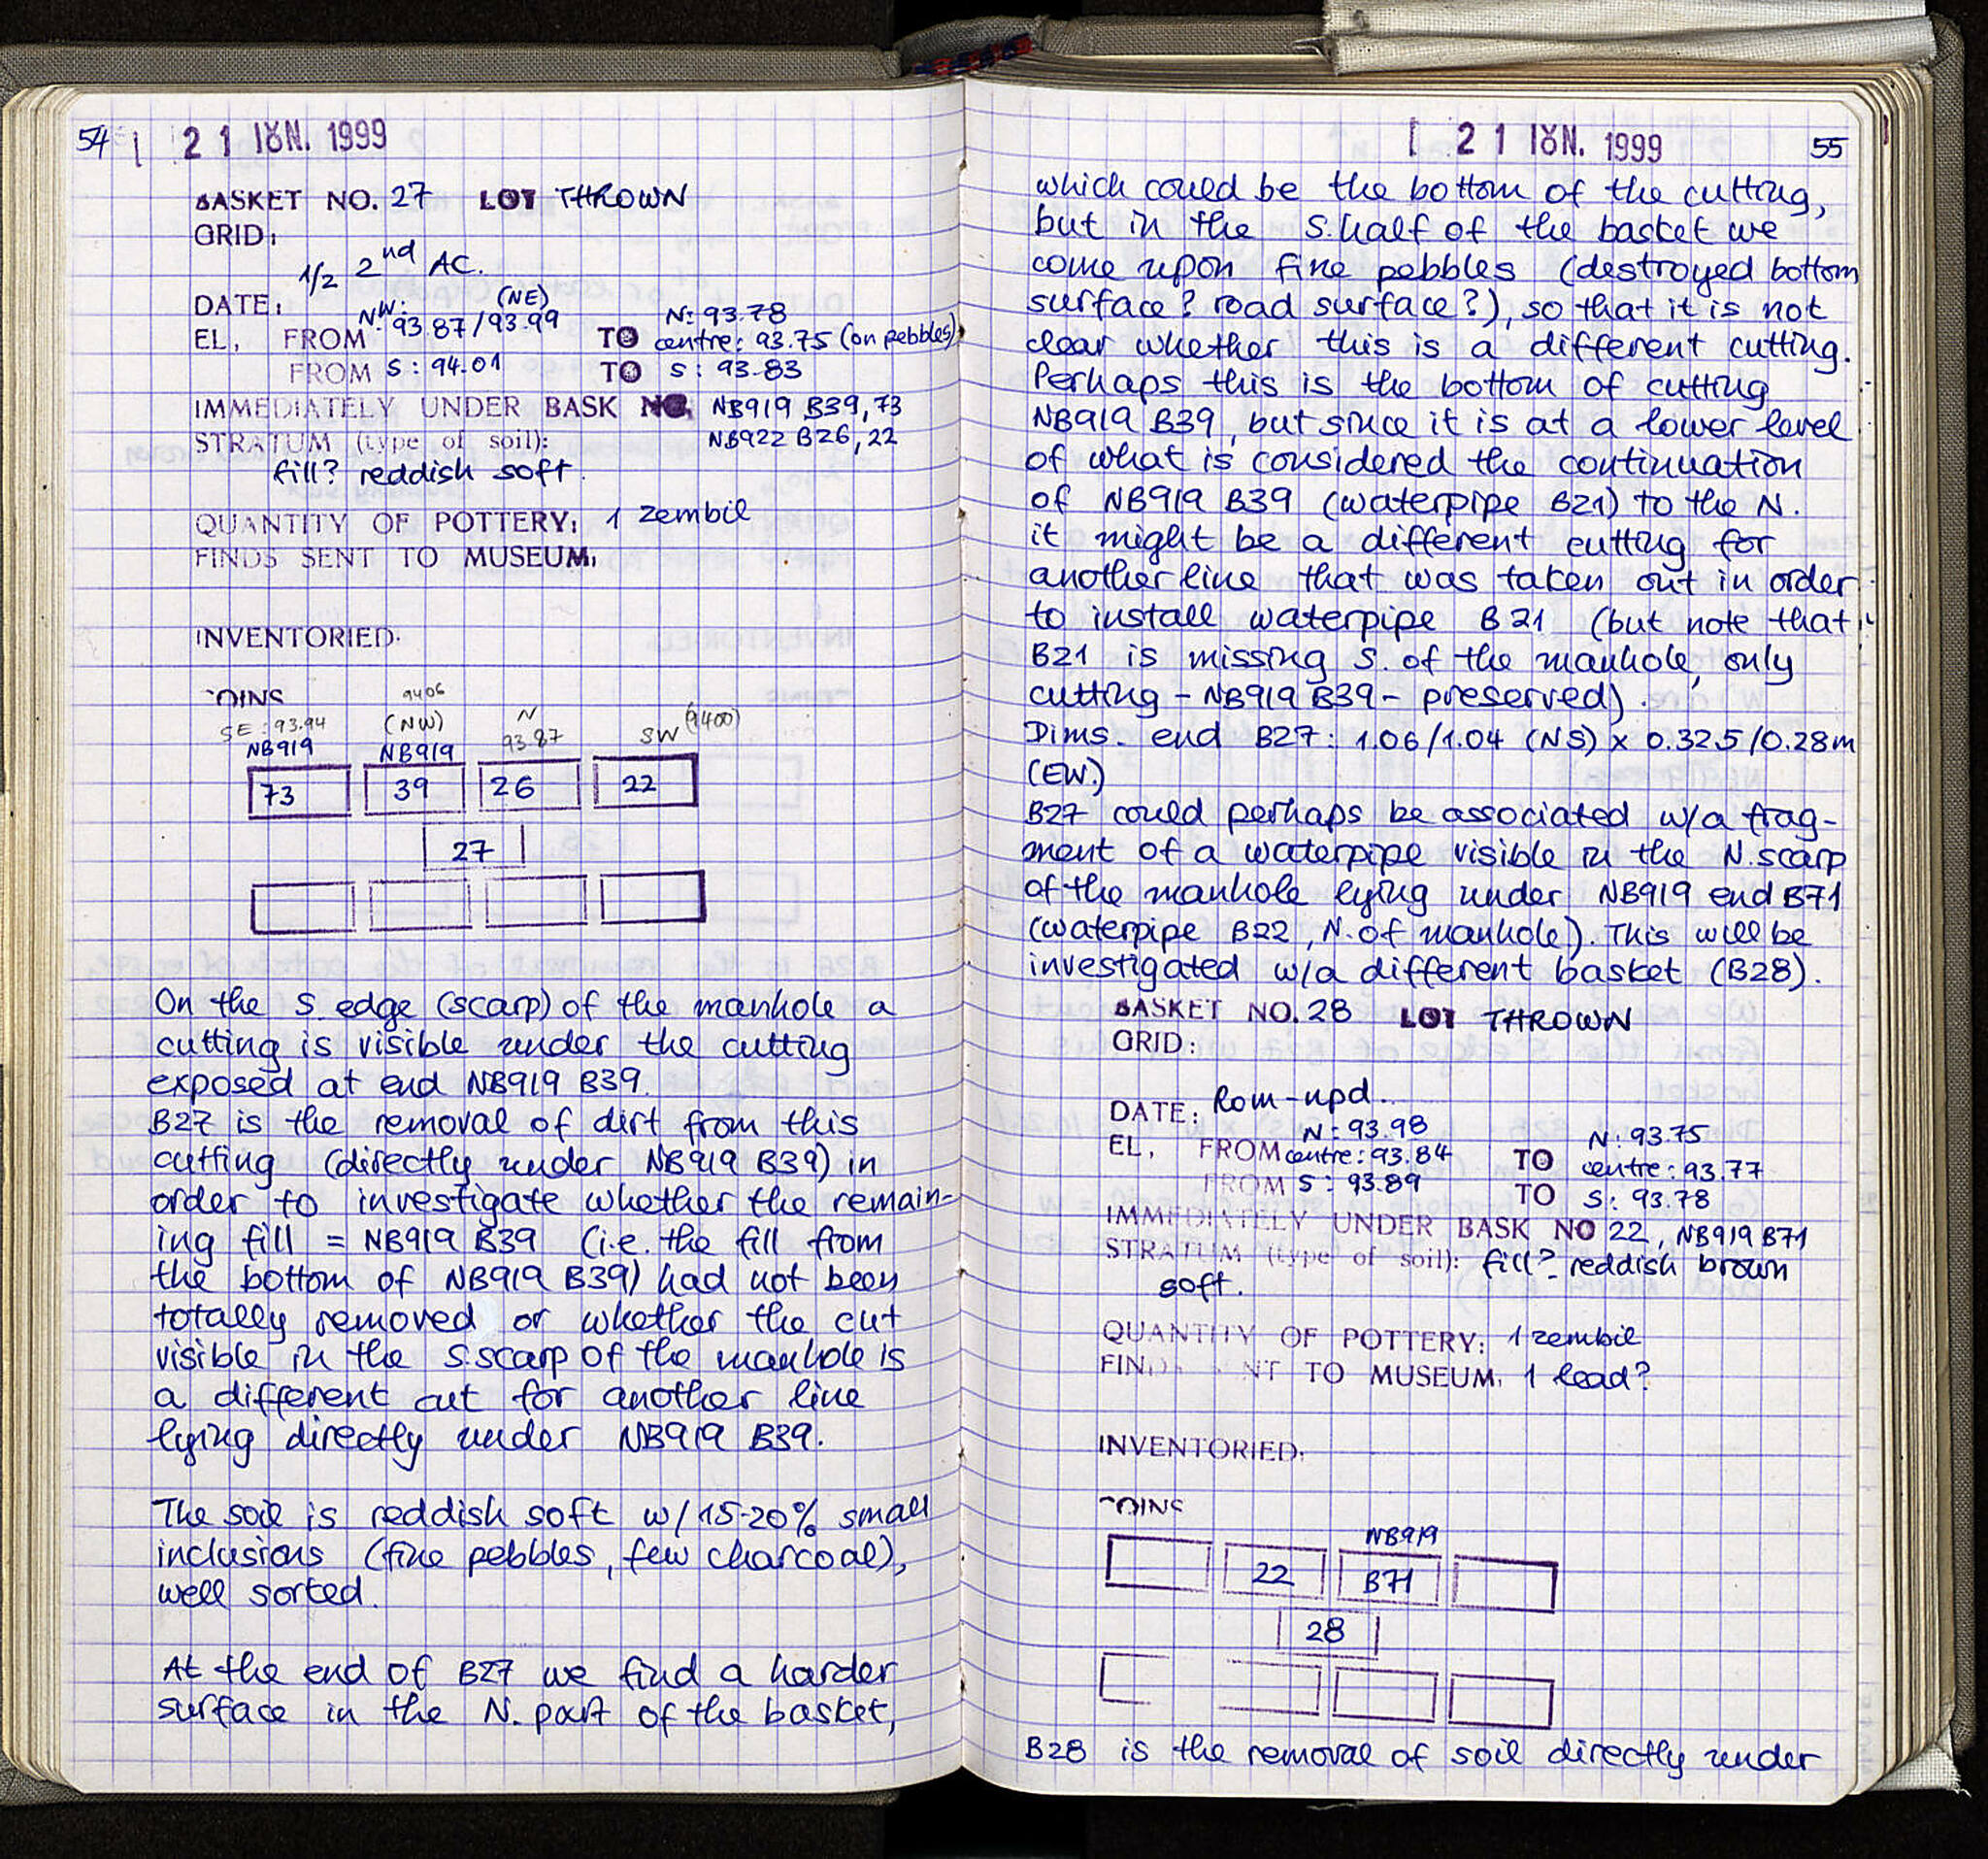 54
21 ΙΟΥΝ. 1999
BASKET NO. 27 LOT THROWN
GRID:
1/2 2nd AC.
DATE:
NW: (NE) N: 93.78
EL, FROM 93.87/93.99 TO centre: 93.75 (on pebbles)
FROM S: 94.01 TO S: 93.83
IMMEDIATELY UNDER BASK NO. NB919 B39, 73
STRATUM (type of soil): NB922 B26, 22
fill? reddish soft.
QUANTITY OF POTTERY: 1 zembil
FINDS SENT TO MUSEUM:
INVENTORIED:
COINS
SE: 93.94 9406 (NW) N 93.87 SW (9400)
NB919 NB919
73 39 26 22
27
On the S. edge (scarp) of the manhole a
cutting is visible under the cutting
exposed at end NB919 B39.
B27 is the removal of dirt from this
cutting (directly under NB919 B39) in
order to investigate whether the remain-
ing fill = NB919 B39 (i.e. the fill from
the bottom of NB919 B39) had not been
totally removed or whether the cut
visible in the S. scarp of the manhole is
a different cut for another line
lying directly under NB919 B39.
The soil is reddish soft w/ 15-20% small
inclusions (fine pebbles, few charcoal),
well sorted.
At the end of B27 we find a harder
surface in the N. part of the basket,
21 ΙΟΥΝ. 1999
55
which could be the bottom of the cutting,
but in the S. half of the basket we
come upon fine pebbles (destroyed bottom
surface? road surface?), so that it is not
clear whether this is a different cutting.
Perhaps this is the bottom of cutting
NB919 B39, but since it is at a lower level
of what is considered the continuation
of NB919 B39 (waterpipe B21) to the N.
it might be a different cutting for
another line that was taken out in order
to install waterpipe B21 (but note that
B21 is missing S. of the manhole, only
cutting - NB919 B39 - preserved).
Dims. end B27: 1.06/1.04 (NS) x 0.325/0.28m
(EW.)
B27 could perhaps be associated w/a frag-
ment of a waterpipe visible in the N. scarp
of the manhole lying under NB919 end B71
(waterpipe B22, N. of manhole). This will be
investigated w/a different basket (B28).
BASKET NO. 28 LOT THROWN
GRID:
DATE: Rom-npd.
N: 93.98 N: 93.75
EL, FROM centre: 93.84 TO centre: 93.77
FROM S: 93.89 TO S: 93.78
IMMEDIATELY UNDER BASK NO 22, NB919 B71
STRATUM (type of soil): fill? reddish brown
soft.
QUANTITY OF POTTERY: 1 zembil
FINDS SENT TO MUSEUM: 1 lead?
INVENTORIED:
COINS
NB919
22 B71
28
B28 is the removal of soil directly under